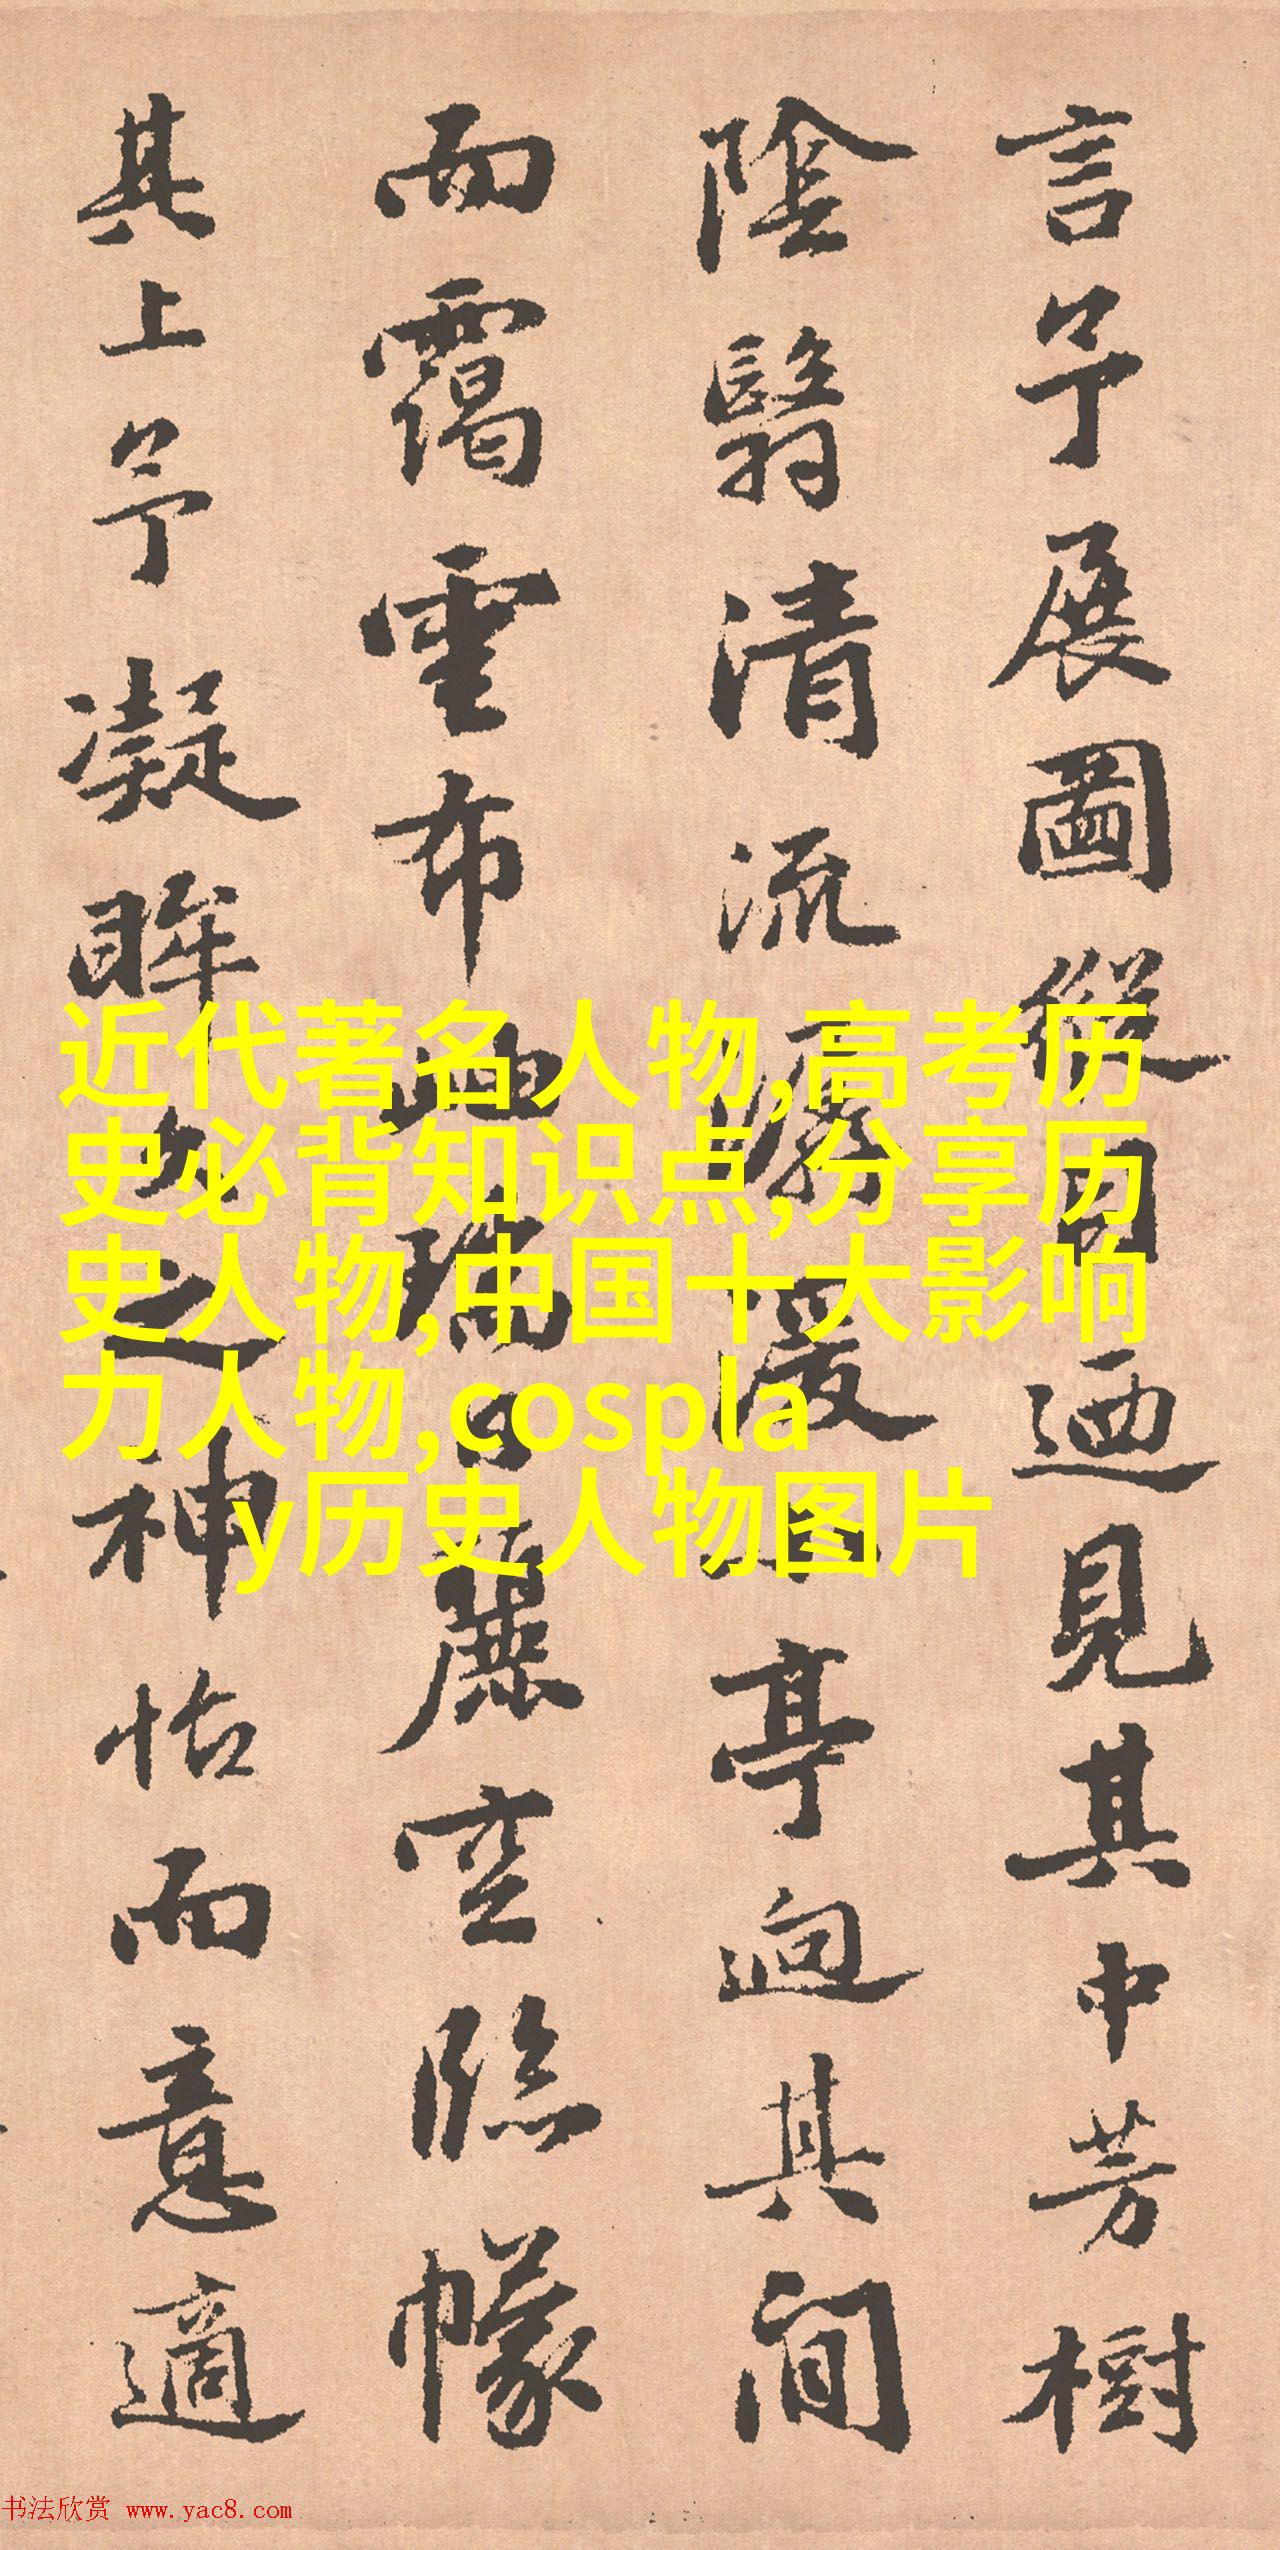 言予展圖縱目迺見其中芳樹
陰翳清流潺湲亭迥其間
而靄雲布瑞日麗空臨幪
其上予凝眸久之神怡而意適
近代著名人物,高考历
史必背知识点,分享历
史人物,中国十大影响
力人物,cospla
y历史人物图片
书法欣赏 www.yac8.com